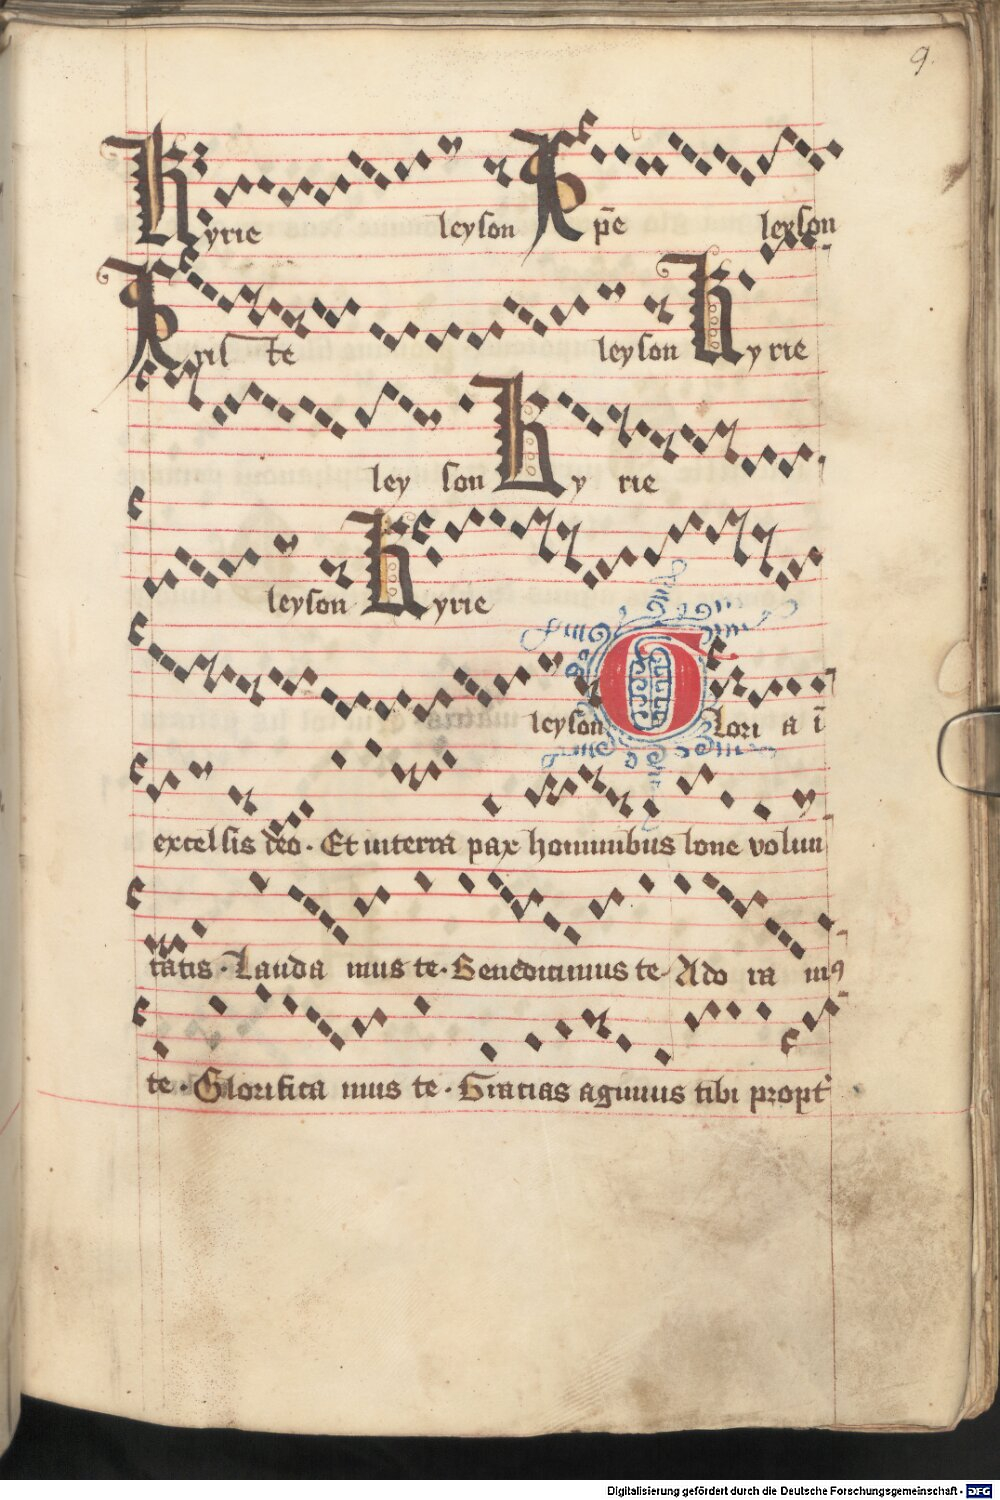 9.
Kyrie leyson Xp̄e leyson
Xpiste leyson Kyrie
ley son Ky rie
leyson Kyrie
leyson Glori a ī
excelsis deo. Et in terra pax hominibus bone volun
tatis. Lauda mus te. Benedicimus te. Ado ra mꝰ
te. Glorifica mus te. Gracias agimus tibi propt᷑
Digitalisierung gefördert durch die Deutsche Forschungsgemeinschaft - DFG